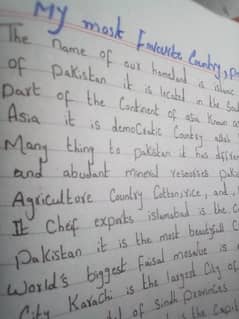 My most Favourite Country, P
The Name of our homeland is islamic
of Pakistan it is located in the Sout
Part of the Continent of asia Known as
Asia it is democratic Country
Many thing to pakistan it has differen
and abudant mineral resources paki
Agriculture Country Cotton, rice, and,
It Chef exports islamabad is the C
Pakistan it is the most beautyfull C
World's biggest faisal mosque is
City Karachi is the largest City of
of Sindh Provinces
is the Capit